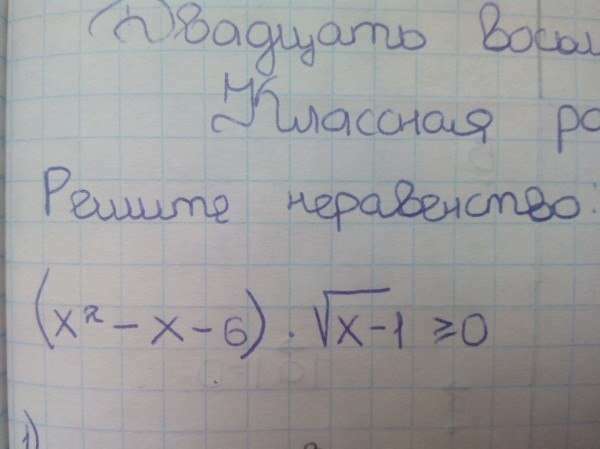 Двадцать
Классная
Решите неравенство:
(x² - x - 6) · √x-1 ≥ 0
1)